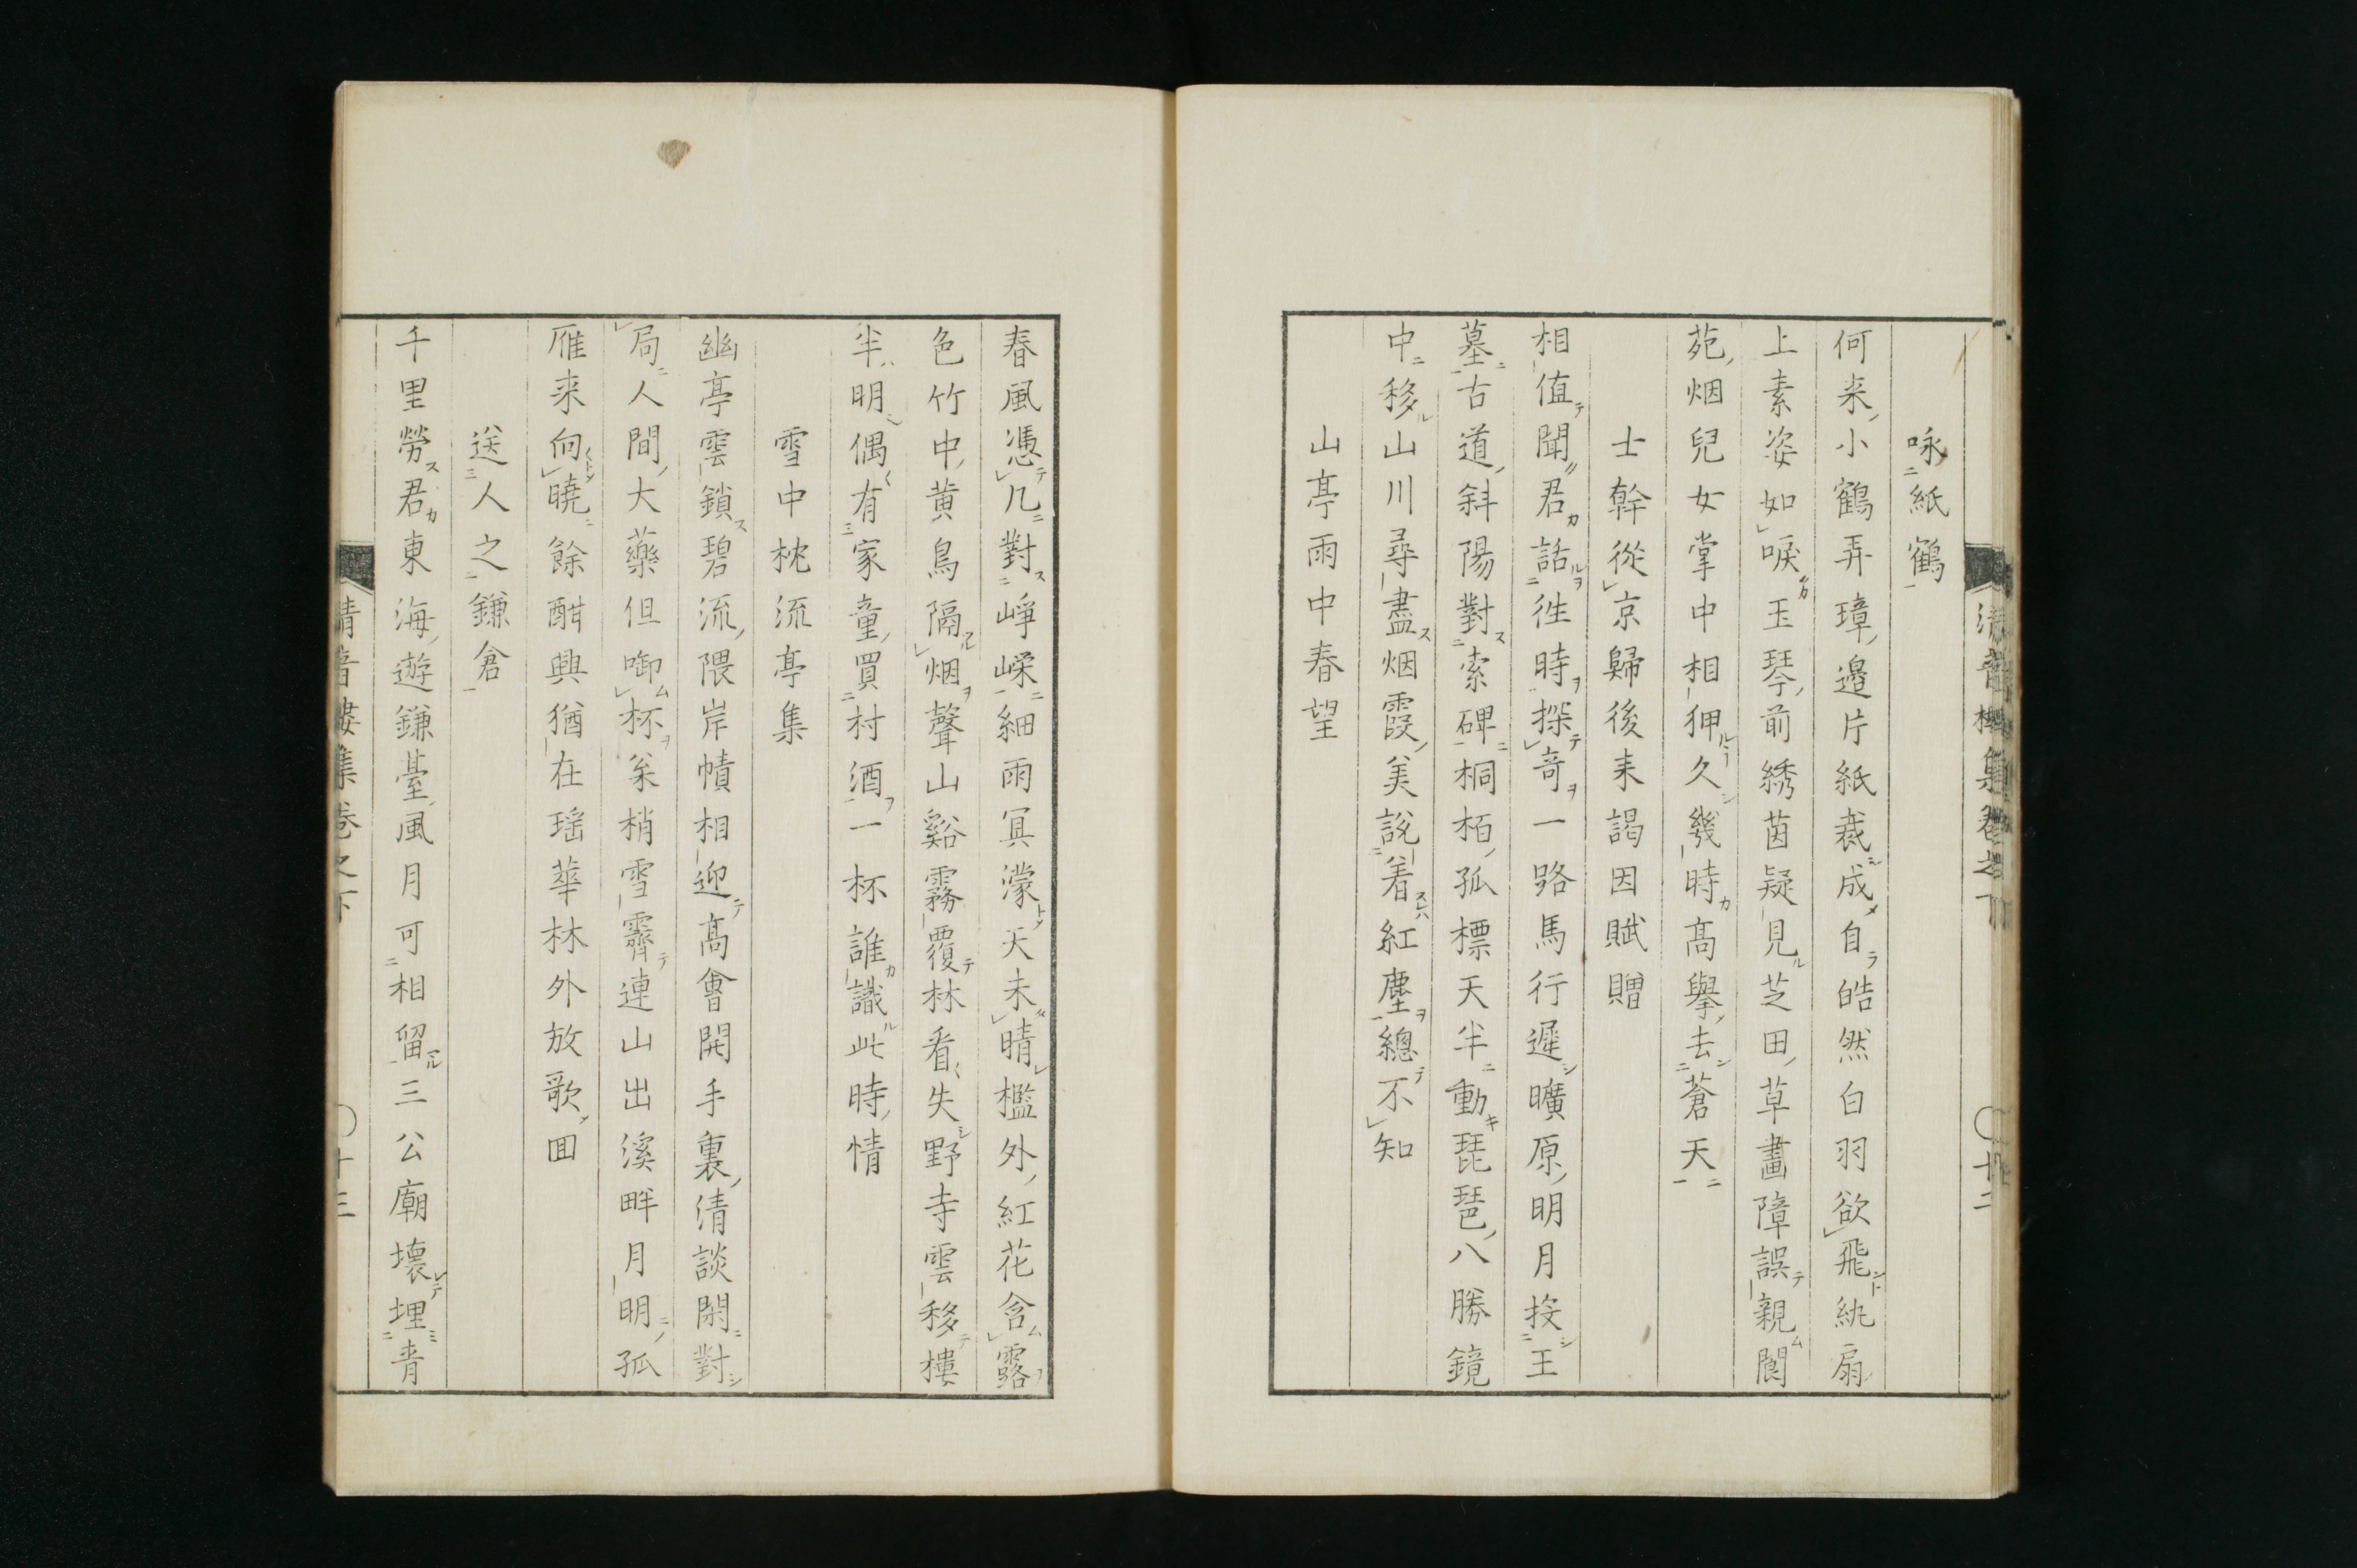 咏紙鶴
何来小鶴弄璋邉片紙裁成自皓然白羽欲飛紈扇
上素姿如唳玉琴前綉茵疑見芝田草畫障誤親閬
苑烟兒女掌中相狎久幾時髙擧去蒼天
士幹從京歸後来謁因賦贈
相値聞君話徃時探竒一路馬行遲曠原明月投王
墓古道斜陽對索碑桐栢孤標天半動琵琶八勝鏡
中移山川尋盡烟霞美説着紅塵總不知
山亭雨中春望
春風憑几對崢嶸細雨冥濛天未晴檻外紅花含露
色竹中黄鳥隔烟聲山谿霧覆林看失野寺雲移樓
半明偶有家童買村酒一杯誰識此時情
雪中枕流亭集
幽亭雲鎖碧流隈岸幘相迎髙會開手裏清談閑對
局人間大藥但啣杯矣梢雪霽連山出溪畔月明孤
雁来向曉餘酣興猶在瑶華林外放歌囬
送人之鎌倉
千里勞君東海遊鎌臺風月可相留三公廟壊埋青
晴音樓集巻之下
〇十三